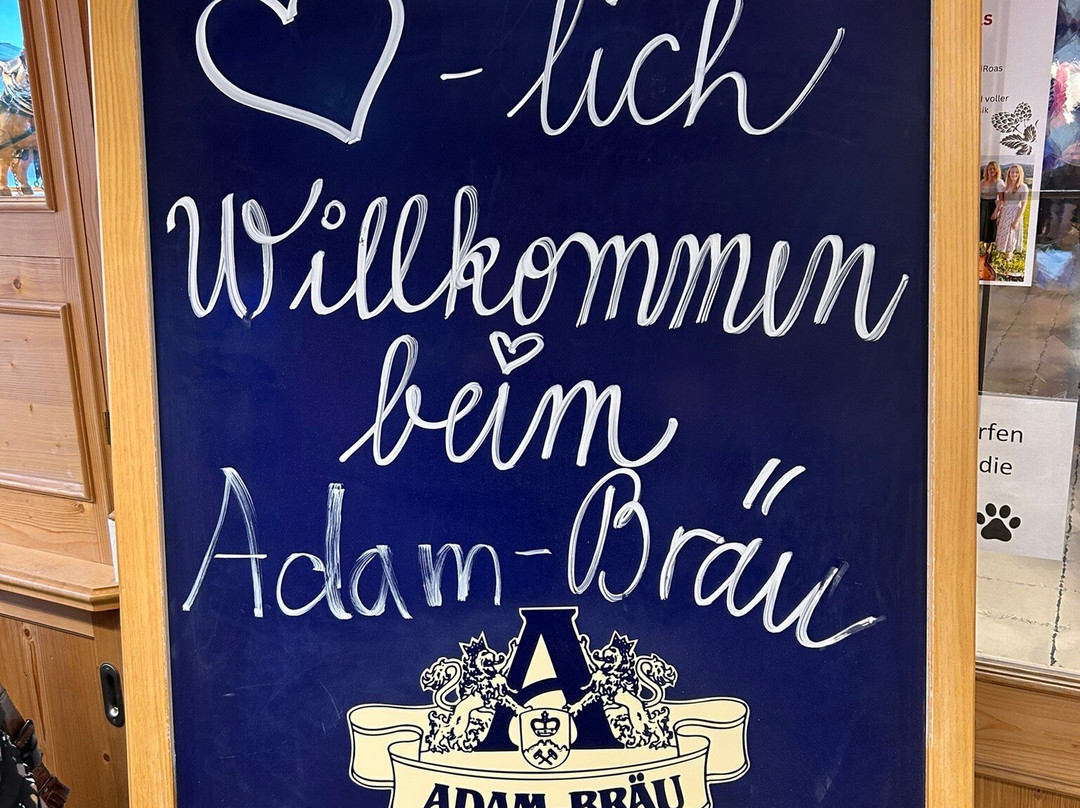 ♡-lich
Willkommen
beim
Adam-Bräu
ADAM BRÄU
s
Roas
voller
ik
rfen
die